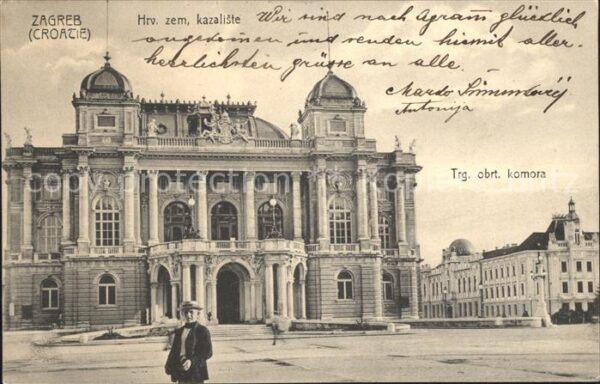 ZAGREB
(CROATIE)
Hrv. zem, kazalište
Wir sind nach Agram glücklich
angekommen und senden hiemit aller-
herzlichsten grüsse an alle.
Marko
Antonija
Trg. obrt. komora